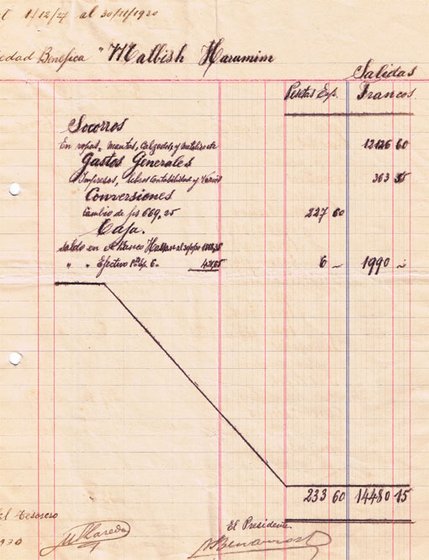 1/12/27 al 30/11/1930
edad Benéfica "Malbish Harumim
Salidas
Pesetas Esp. Francos
Socorros
En ropas, mantas, Calzados, y 12126 60
Gastos Generales
Impresos, libros Contabilidad y Varios 363 35
Conversiones
cambio de pts 669,25 227 60
Caja.
saldo en el Banco Hassan
" " Efectivo 6 — 1990 —
233 60 14480 15
el Tesorero
El Presidente.
930